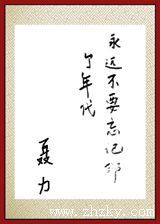 永远不要忘记那
个年代
聂力
www.zhzky.com